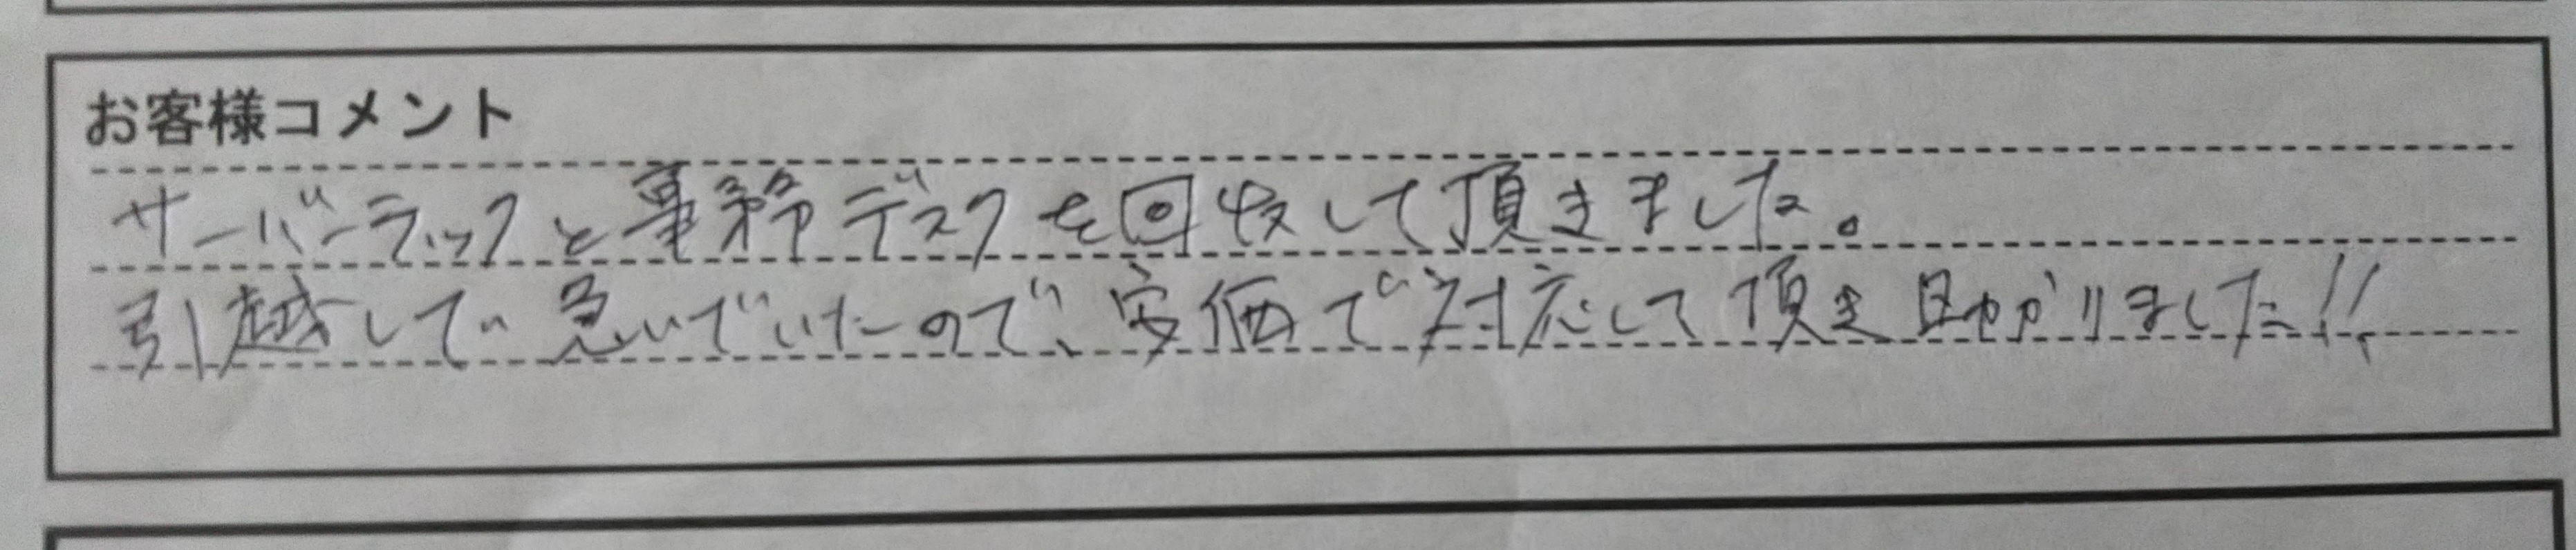 お客様コメント
サーバーラックと事務デスクを回収して頂きました。
引越しで急いでいたので、安価で対応して頂き助かりました!!